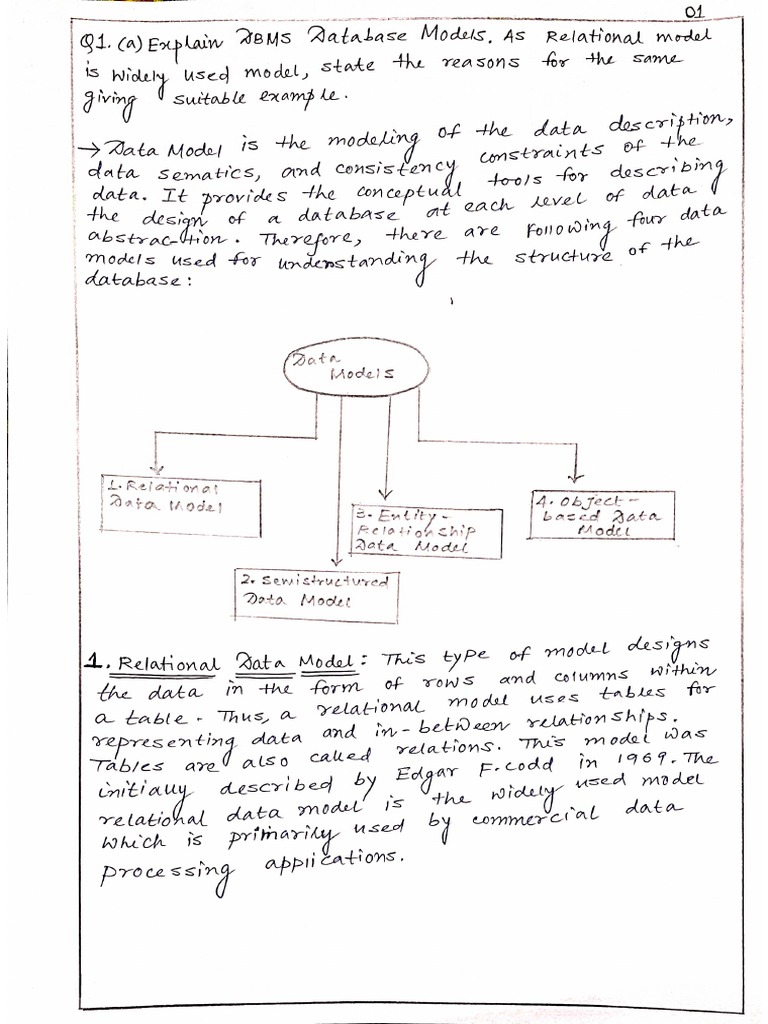 01
Q1. (a) Explain DBMS Database Models. As Relational model
is widely used model, state the reasons for the same
giving suitable example.
→ Data Model is the modeling of the data description,
data sematics, and consistency constraints of the
data. It provides the conceptual tools for describing
the design of a database at each level of data
abstrac-tion. Therefore, there are following four data
models used for understanding the structure of the
database:
Data
Models
1. Relational
Data Model
3. Entity-
Relationship
Data Model
4. Object-
based Data
Model
2. Semistructured
Data Model
1. Relational Data Model: This type of model designs
the data in the form of rows and columns within
a table. Thus, a relational model uses tables for
representing data and in-between relationships.
Tables are also called relations. This model was
initially described by Edgar F. Codd in 1969. The
relational data model is the widely used model
which is primarily used by commercial data
processing applications.